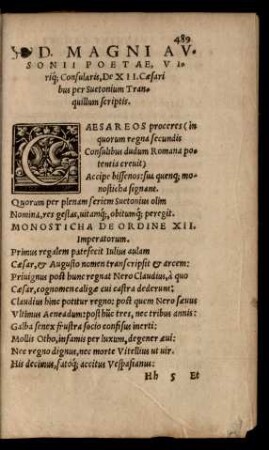 489
D. MAGNI AV-
SONII POETAE, VI-
riq; Consularis, De XII. Cæsari
bus per Suetonium Tran-
quillum scriptis.
CAESAREOS proceres (in
quorum regna secundis
Consulibus dudum Romana po-
tentia creuit)
Accipe bissenos: sua quenq; mo-
nosticha signant.
Quorum per plenam seriem Suetonius olim
Nomina, res gestas, uitamq́;, obitumq́; peregit.
MONOSTICHA DE ORDINE XII.
Imperatorum.
Primus regalem patefecit Iulius aulam
Cæsar, & Augusto nomen transcripsit & arcem:
Priuignus post hunc regnat Nero Claudius, à quo
Cæsar, cognomen caligæ cui castra dederunt:
Claudius hinc potitur regno: post quem Nero sæuus
Vltimus Aeneadum: post hūc tres, nec tribus annis:
Galba senex frustra socio confisus inerti:
Mollis Otho, infamis per luxum, degener æui:
Nec regno dignus, nec morte Vitellius ut uir.
His decimus, fatoq́; accitus Vespasianus:
Hh 5 Et